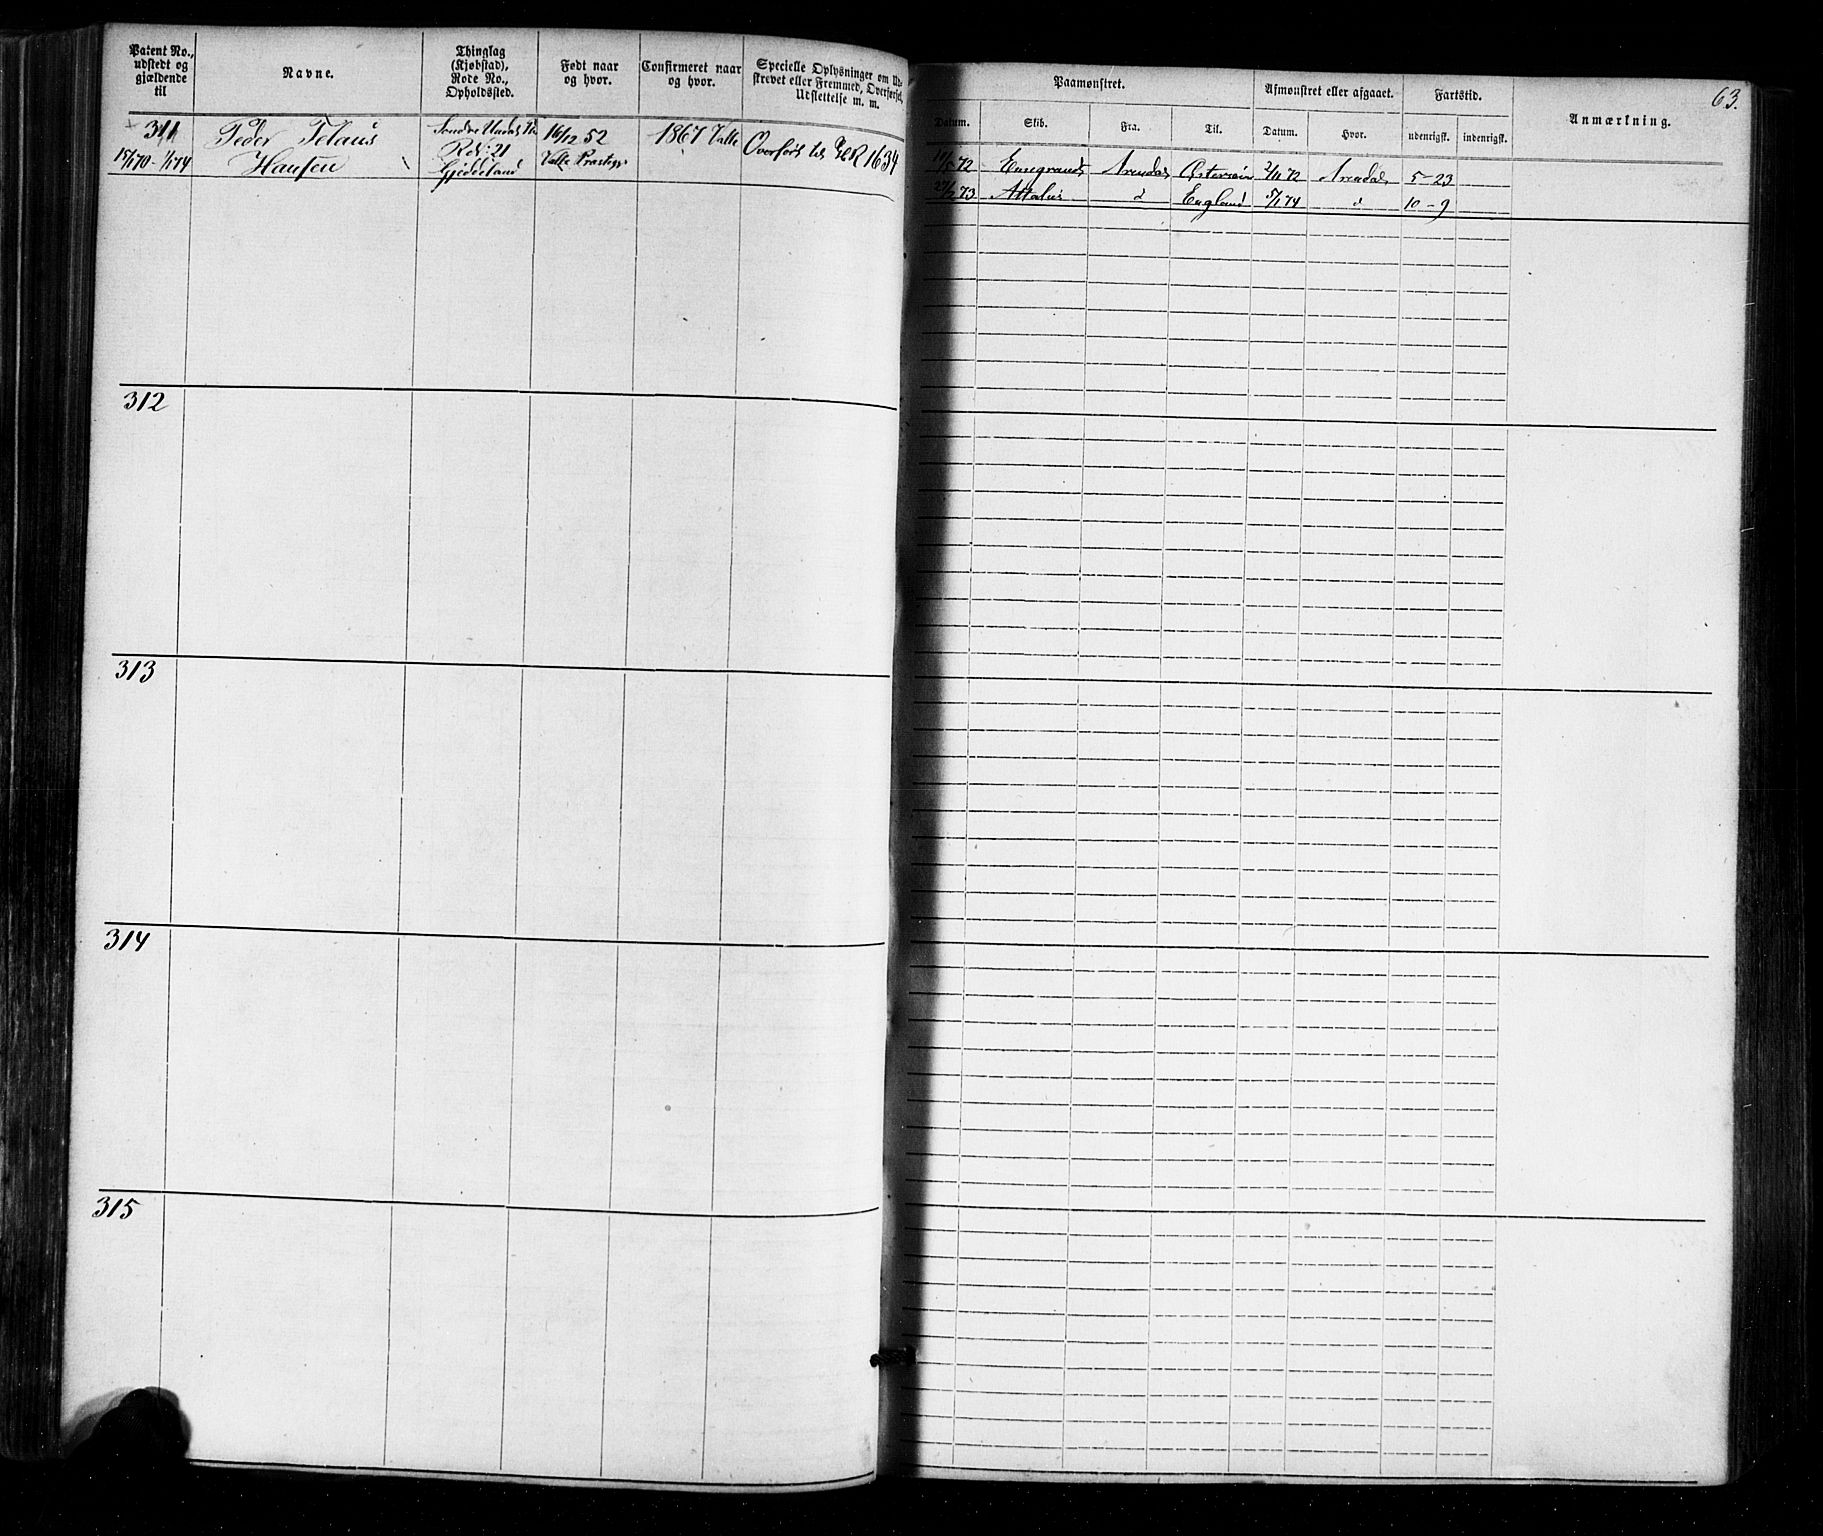 Patent No.,
udstedt og
gjældende
til
Navne.
Thinglag
(Kjøbstad),
Rode No.,
Opholdssted.
Født naar
og hvor.
Confirmeret naar
og hvor.
Specielle Oplysninger om Ud-
skrevet eller Fremmed, Overførsel,
Udslettelse m. m.
311
15/1 70 - 1/1 74
Peder Telaus
Hansen
Rode 21
Gjeddeland
16/12 52
Valle Præstegj.
1867 Valle
Overført til HR 1634
312
313
314
315
63.
Paamønstret.
Afmønstret eller afgaaet.
Fartstid.
Anmærkning.
Datum.
Skib.
Fra.
Til.
Datum.
Hvor.
udenrigsk.
indenrigsk.
72 Arendal Østersøen 2/11 72 Arendal 5-23
27/2 73 Attalus d England 5/1 74 d 10-9